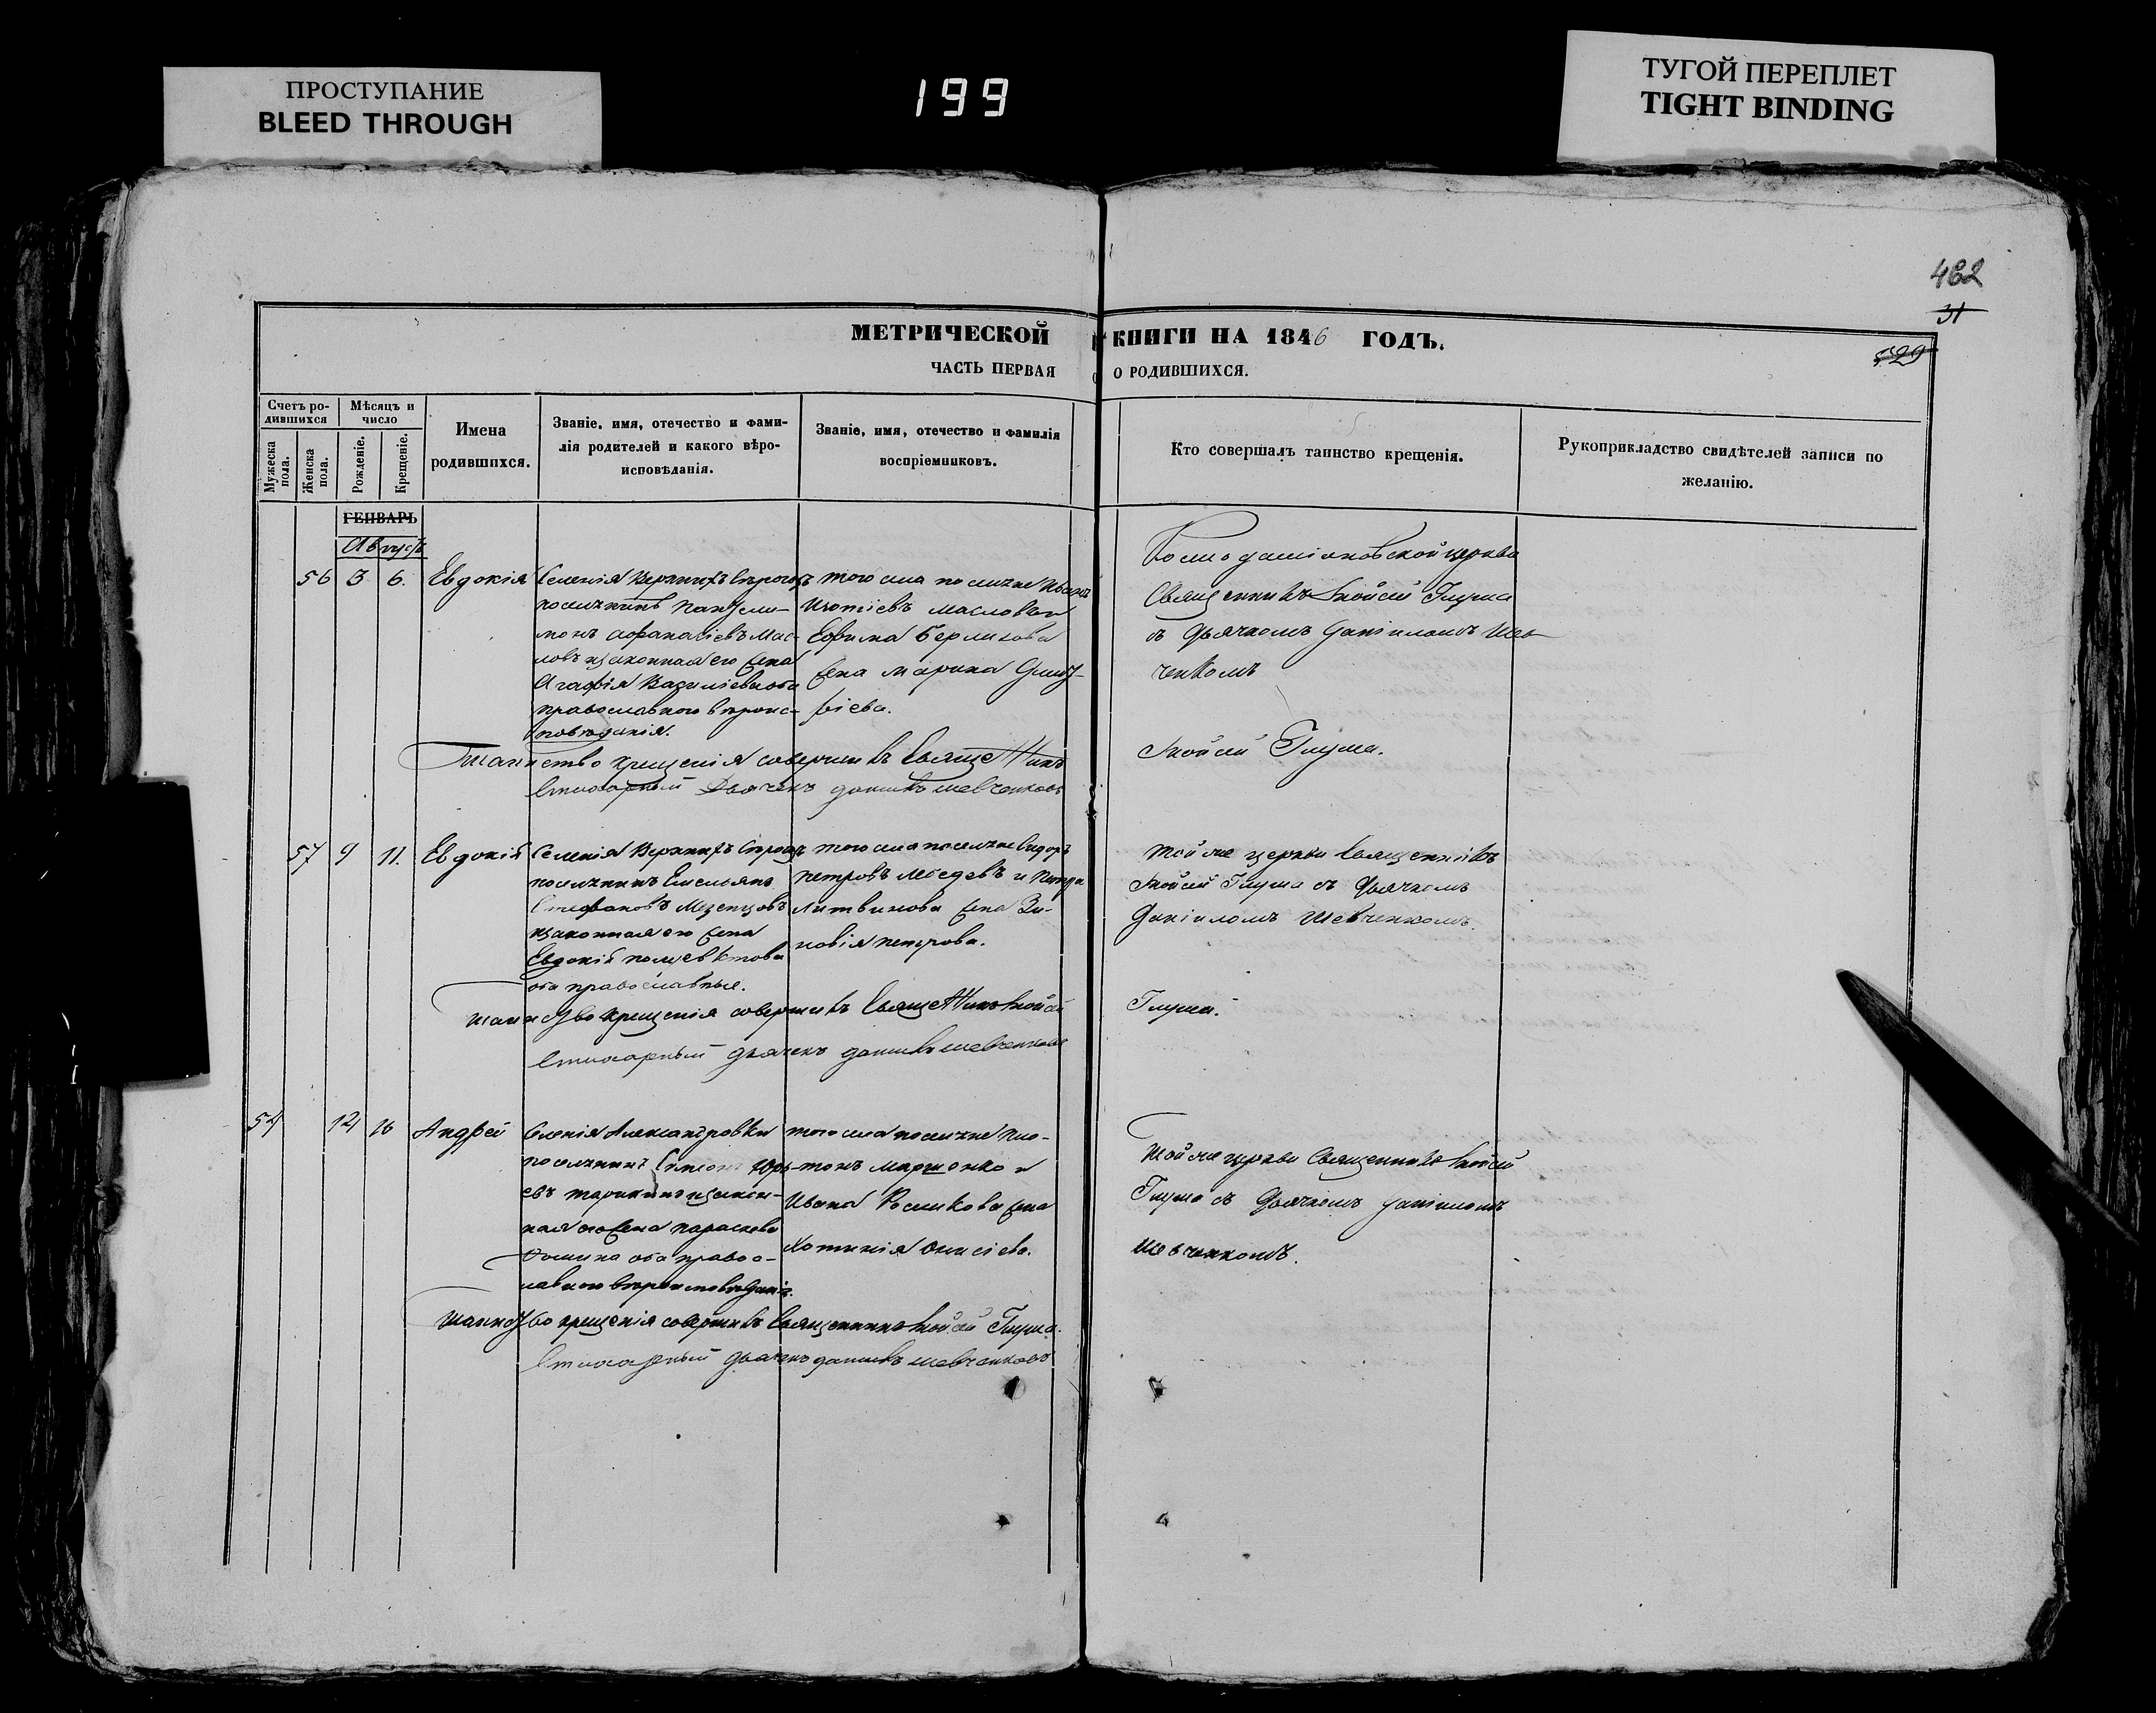 ПРОСТУПАНИЕ
BLEED THROUGH
199
ТУГОЙ ПЕРЕПЛЕТ
TIGHT BINDING
482
31
529
МЕТРИЧЕСКОЙ КНИГИ НА 1846 ГОДЪ.
ЧАСТЬ ПЕРВАЯ О РОДИВШИХСЯ.
Счетъ ро-
дившихся
Мѣсяцъ и
число
Мужеска
пола.
Женска
пола.
Рожденіе.
Крещеніе.
Имена
родившихся.
Званіе, имя, отечество и фами-
лія родителей и какого вѣро-
исповѣданія.
Званіе, имя, отечество и фамилія
воспріемниковъ.
Кто совершалъ таинство крещенія.
Рукоприкладство свидѣтелей записи по
желанію.
ГЕНВАРЬ
Августъ
56 3 6. Евдокія
Селенія Верхнихъ Сѣрогозъ
поселянинъ Пантели-
монъ Афанасіевъ Мас-
ловъ и законная его жена
Агафія Василіева оба
православного вѣроис-
повѣданія.
того села поселяне Иванъ
Маслов и
Ефима Берликова
жена Марина
сіева.
Космодаміановской церкви
Священникъ Глума
съ Дьячкомъ Даніиломъ Шев-
ченкомъ
Таинство крещенія совершилъ Священникъ
Глума.
Стихарный Дьячекъ Данилъ Шевченковъ
57 9 11. Евдокія
Селенія Верхнихъ Сѣрогозъ
поселянинъ Емельянъ
Стефановъ Мезенцовъ
и законная его жена
Евдокія
оба православные.
того села поселяне Сидоръ
Петровъ Лебедевъ и Петра
Литвинова жена Зи-
новія Петрова.
той же церкви Священникъ
Глума съ Дьячкомъ
Даніиломъ Шевченкомъ.
таинство крещенія совершилъ Священникъ
Глума.
Стихарный дьячекъ Данилъ Шевченковъ
54 12 16 Андрей
Селенія Александровки
поселянинъ Симеонъ Юрь-
евъ и закон-
ная его жена Параскева
Фомина оба правос-
лавного вѣроисповѣданія.
того села поселяне Пло-
тонъ Марченко и
Ивана жена
Хотинія
Той же церкви Священникъ
Глума съ Дьячкомъ Даніиломъ
Шевченкомъ.
Таинство крещенія совершилъ Священникъ Глума.
Стихарный дьячекъ Данилъ Шевченковъ